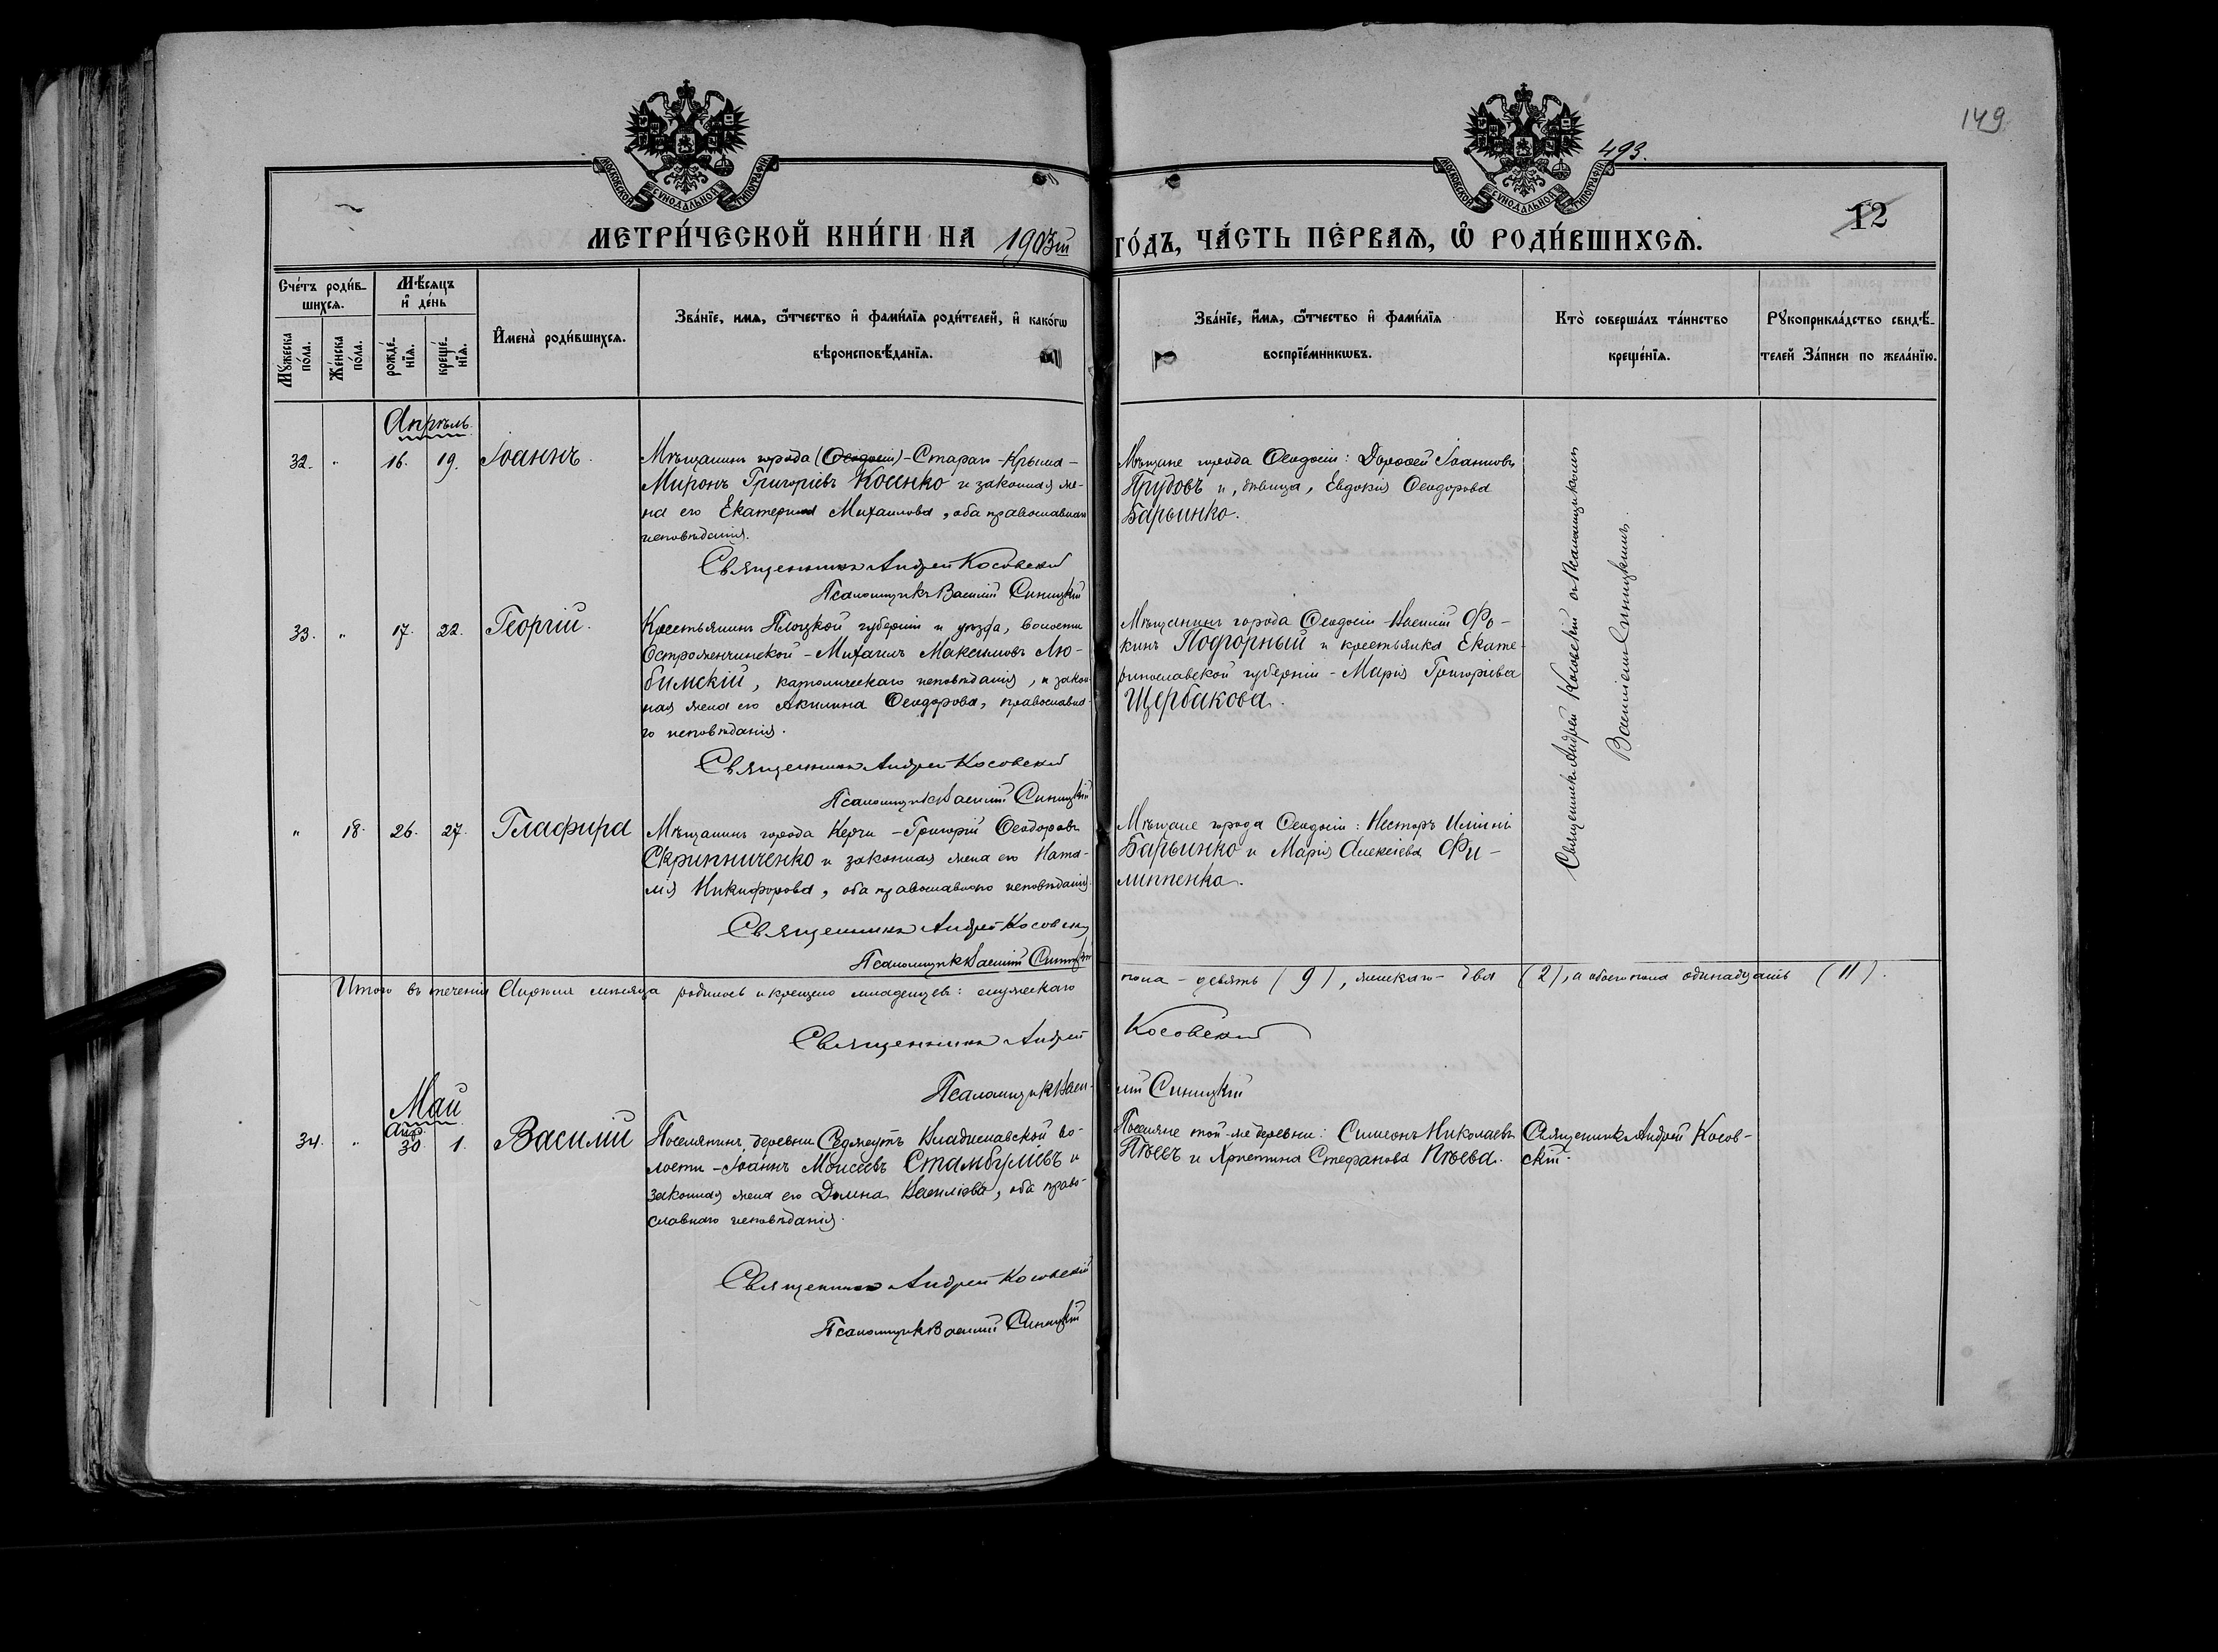 149
493.
МОСКОВСКОЙ СѴНОДАЛЬНОЙ ТИПОГРАФІИ
МОСКОВСКОЙ СѴНОДАЛЬНОЙ ТИПОГРАФІИ
12
МЕТРИ́ЧЕСКОЙ КНИ́ГИ НА 1903й ГО́ДЪ, ЧА́СТЬ ПЕ́РВАѦ, Ѡ РОДИ́ВШИХСѦ.
Сче́тъ роди́в-
шихсѧ.
Мꙋжеска по́ла.
Же́нска по́ла.
Мѣ́сѧцъ
и҆ де́нь
рожде́-
нїѧ.
креще́-
нїѧ.
И҆мена̀ роди́вшихсѧ.
Зва́нїе, имѧ, ѻ҆́тчество и҆ фами́лїѧ роди́телей, и҆ како́гѡ
вѣроисповѣ́данїѧ.
Зва́нїе, и҆́мѧ, ѻ҆́тчество и҆ фами́лїѧ
воспрїе́мникѡвъ.
Кто̀ соверша́лъ та́инство
креще́нїѧ.
Рꙋкоприкла́дство свидѣ́-
телей За́писи по жела́нїю.
Апрѣль
32. " 16. 19. Іоаннъ.
Мѣщанинъ города (Ѳеодосіи) - Стараго-Крыма -
Миронъ Григоріевъ Косенко и законная же-
на его Екатерина Михаилова, оба православнаго
исповѣданія.
Священникъ Андрей Косовскій
Псаломщикъ Василій Синицкій
Мѣщане города Ѳеодосіи: Дороѳей Іоанновъ
Прудовъ и, дѣвица, Евдокія Ѳеодорова
Барвинко.
Священникъ Андрей Косовскій съ Псаломщикомъ
Василіемъ Синицкимъ.
33. " 17. 22. Георгій.
Крестьянинъ Плоцкой губерніи и уѣзда, волости
- Михаилъ Максимовъ Лю-
бимскій, католическаго исповѣданія, и закон-
ная жена его Акилина Ѳеодорова, православна-
го исповѣданія.
Священникъ Андрей Косовскій
Псаломщикъ Василій Синицкій
Мѣщанинъ города Ѳеодосіи Василій Фо-
кинъ Подгорный и крестьянка Екате-
ринославской губерніи - Марія Григоріева
Щербакова.
" 18. 26. 27. Глафира
Мѣщанинъ города Керчи - Григорій Ѳеодоровъ
Скрипниченко и законная жена его Ната-
лія Никифорова, оба православнаго исповѣданія.
Священникъ Андрей Косовскій
Псаломщикъ Василій Синицкій
Мѣщане города Ѳеодосіи: Несторъ Иліинъ
Барвинко и Марія Алексіева Фи-
липпенко.
Итого въ теченіи Апрѣля мѣсяца родилось и крещено младенцевъ: мужескаго пола - девять (9), женскаго - два (2), а обоего пола одинадцать (11).
Священникъ Андрей Косовскій
Псаломщикъ Василій Синицкій
Май
34. " Апр. 30. 1. Василій
Поселянинъ деревни Владиславской во-
лости - Іоаннъ Моисеевъ Стамбуліевъ и
законная жена его Домна Василіева, оба право-
славнаго исповѣданія.
Священникъ Андрей Косовскій
Псаломщикъ Василій Синицкій
Поселяне той-же деревни: Симеонъ Николаевъ
и Христина Стефанова
Священникъ Андрей Косов-
скій.